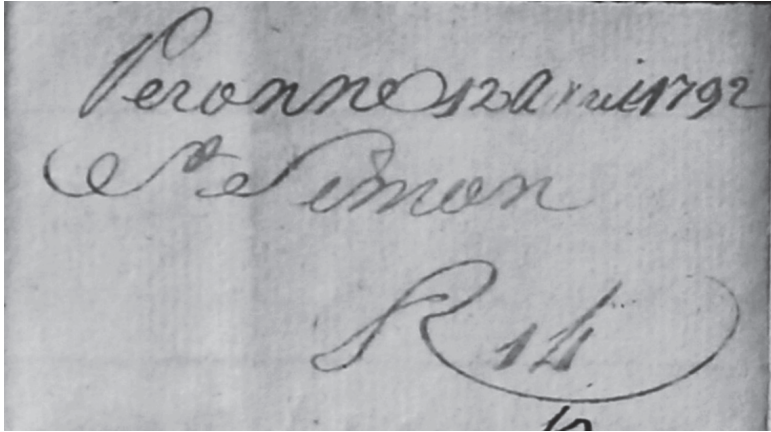 Peronne 12 Avril 1792
St Simon
R 14